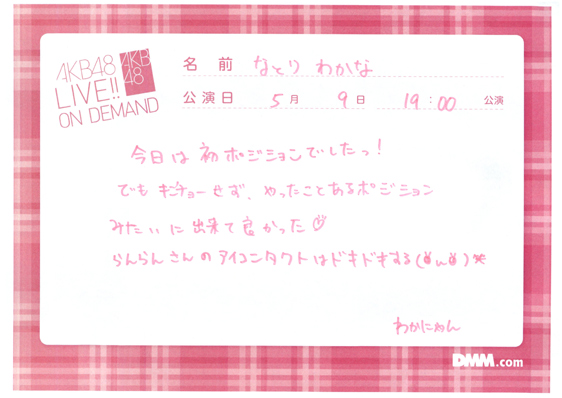 AKB48
LIVE!!
ON DEMAND
AKB
48
名 前 なとり わかな
公演日 5月 9日 19:00 公演
今日は初ポジションでしたっ!
でもキンチョーせず、やったことあるポジション
みたいに出来て良かった
らんらんさんのアイコンタクトはドキドキする
わかにゃん
DMM.com